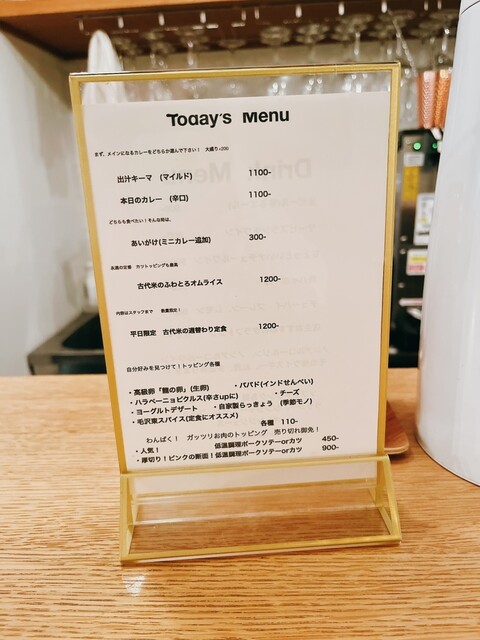 Today's Menu
まず、メインになるカレーをどちらか選んで下さい！ 大盛り+200
出汁キーマ (マイルド) 1100-
本日のカレー (辛口) 1100-
どちらも食べたい！そんな時は、
あいがけ(ミニカレー追加) 300-
永遠の定番 カツトッピングも最高
古代米のふわとろオムライス 1200-
内容はスタッフまで 数量限定！
平日限定 古代米の週替わり定食 1200-
自分好みを見つけて！トッピング各種
・高級卵「龍の卵」(生卵) ・パパド(インドせんべい)
・ハラペーニョピクルス(辛さupに) ・チーズ
・ヨーグルトデザート ・自家製らっきょう (季節モノ)
・毛沢東スパイス(定食にオススメ)
各種 110-
わんぱく！ ガッツリお肉のトッピング 売り切れ御免！
・人気！ 低温調理ポークソテーorカツ 450-
・厚切り！ピンクの断面！低温調理ポークソテーorカツ 900-